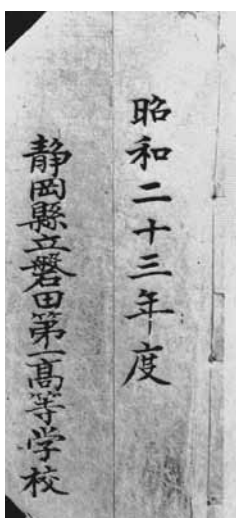 昭和二十三年度
静岡縣立磐田第一髙等学校